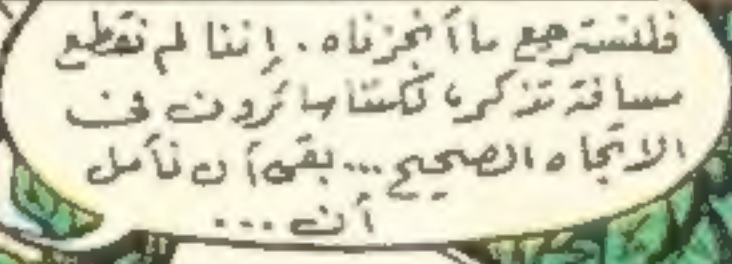 فلنسترجع ما أنجزناه. إننا لم نقطع
مسافة تذكر، لكننا سائرون في
الاتجاه الصحيح... بقي أن نأمل
أن...